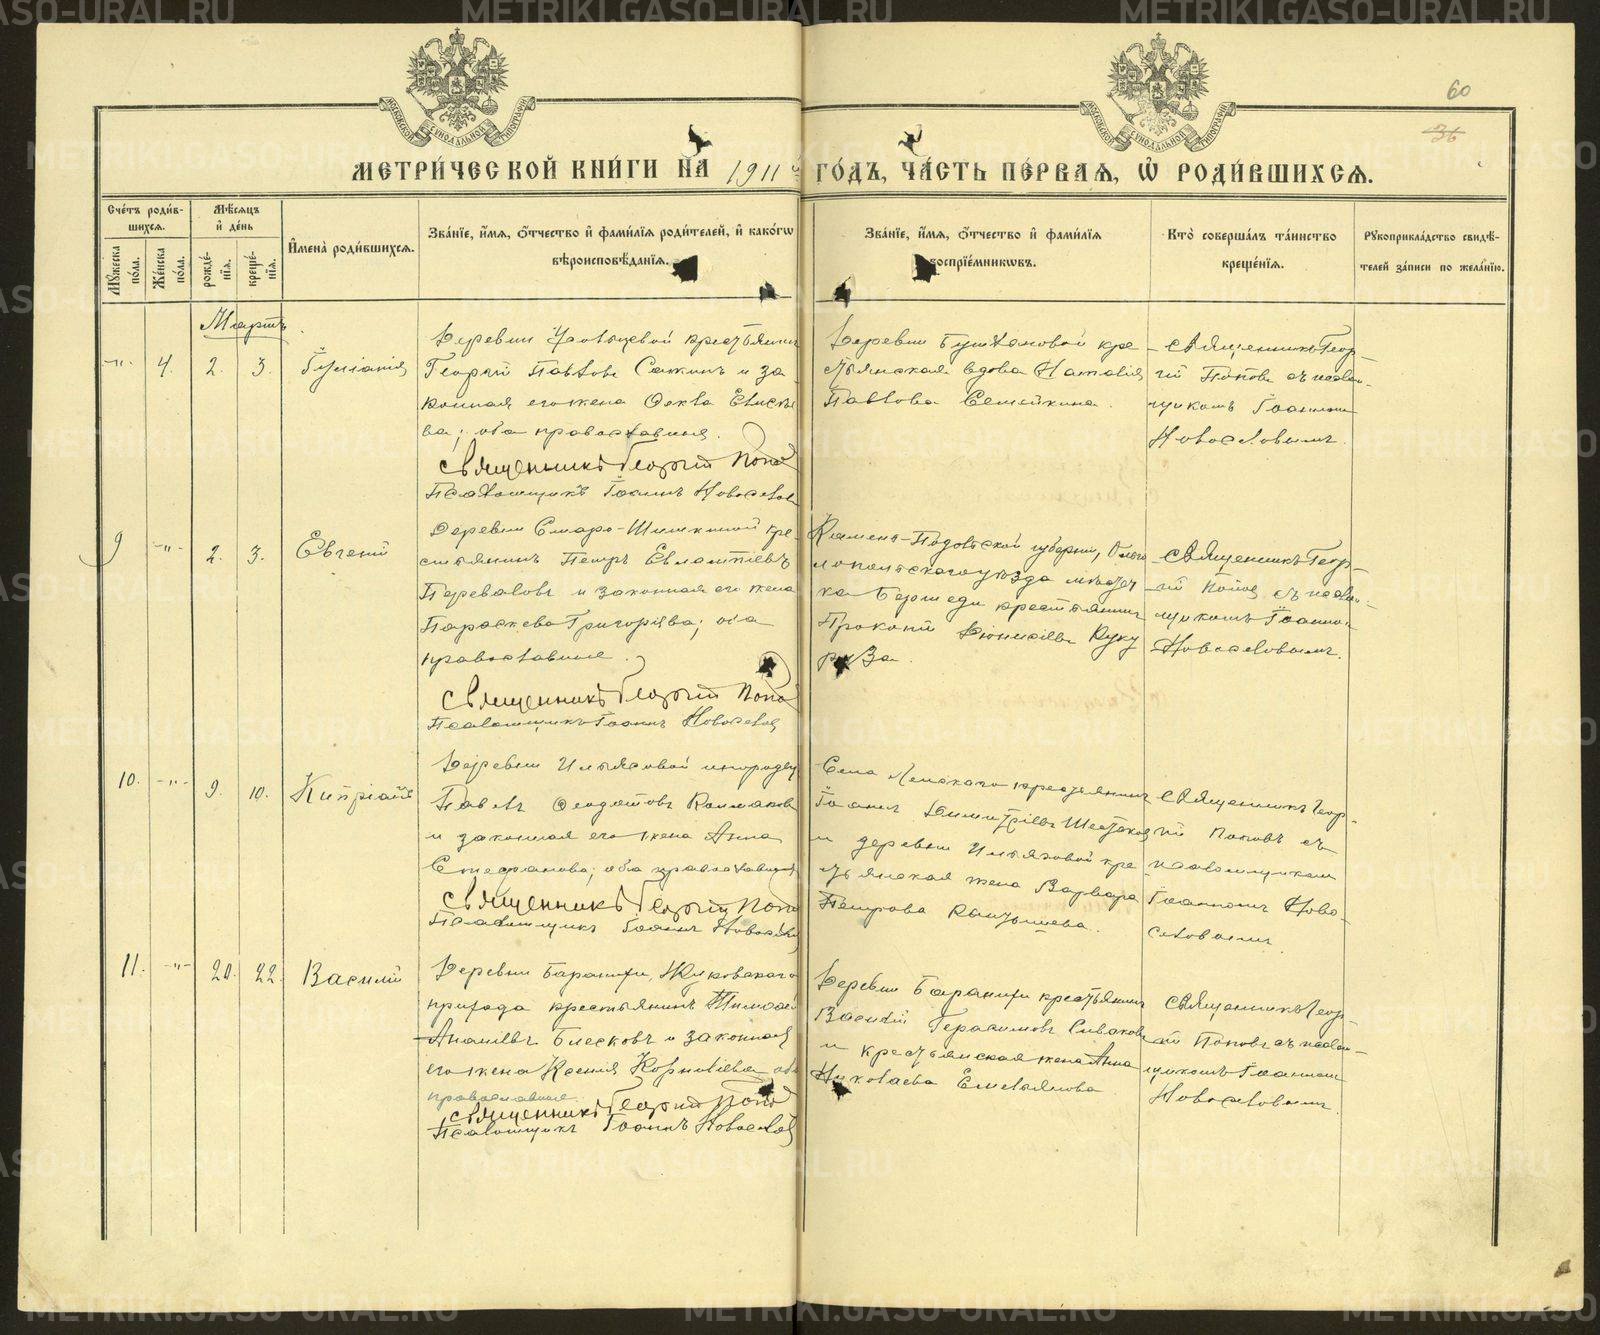 60
36
МЕТРИ́ЧЕСКОЙ КНИ́ГИ НА 1911й ГО́ДЪ, ЧА́СТЬ ПЕ́РВАЯ, Ѡ҆ РОДИ́ВШИХСЯ.
Сче́тъ роди́вшихся.
Мꙋ́жеска по́ла.
Же́нска по́ла.
Мѣ́сяцъ и҆ де́нь
рожде́нїя.
креще́нїя.
И҆мена̀ роди́вшихся.
Зва́нїе, и҆́мя, ѻ҆́тчество и҆ фами́лїя роди́телей, и҆ како́гѡ
вѣроисповѣ́данїя.
Зва́нїе, и҆́мя, ѻ҆́тчество и҆ фами́лїя
воспрїе́мникѡвъ.
Кто̀ соверша́лъ та́инство
креще́нїя.
Рꙋкоприкла́дство свидѣ́-
телей за́писи по жела́нїю.
Мартъ.
-"- 4. 2. 3. Іуліанія
Деревни крестьянинъ
Георгій Павловъ и за-
конная его жена
ва; оба православные.
Священникъ Георгій Попов
Псаломщикъ Іоаннъ Новоселов
Деревни кре-
стьянская вдова Наталія
Павлова Семейкина.
Священникъ Геор-
гій Поповъ съ псалом-
щикомъ Іоанномъ
Новоселовымъ.
9 -"- 2. 3. Евгеній
Деревни Старо- кре-
стьянинъ Петръ Евлампіевъ
Переваловъ и законная его жена
Параскева Григоріева; оба
православные.
Священникъ Георгій Попов
Псаломщикъ Іоаннъ Новоселов
Камено-Подольской губерніи,
уѣзда мѣстеч
ка крестьянинъ
Прокопій Діонисіевъ Куку
руза.
Священникъ Геор-
гій Попов съ псалом-
щикомъ Іоанном
Новоселовымъ.
10. -"- 9. 10. Кипріанъ
Деревни Ильясовой инородец
Павелъ Ѳеодотовъ Колмаков
и законная его жена Анна
Стефанова; оба православные
Священникъ Георгій Попов
Псаломщикъ Іоаннъ Новоселов
Села крестьянинъ
Іоаннъ Димитріевъ Шестаков
и деревни Ильясовой кре-
стьянская жена Варвара
Петрова
Священникъ Геор-
гій Поповъ съ
псаломщикомъ
Іоанномъ Ново-
селовымъ.
11. -"- 20. 22. Василій
Деревни Баранихи, Жуковскаго
прихода крестьянинъ Тимоѳей
Ананіевъ Блесковъ и законная
его жена Ксенія Корниліева оба
православные.
Священникъ Георгій Попов
Псаломщикъ Іоаннъ Новоселов
Деревни Баранихи крестьянинъ
Василій Герасимовъ Сиваков
и крестьянская жена Анна
Николаева Емельянова
Священникъ Геор-
гій Поповъ съ псалом-
щикомъ Іоанномъ
Новоселовымъ.
METRIKI.GASO-URAL.RU